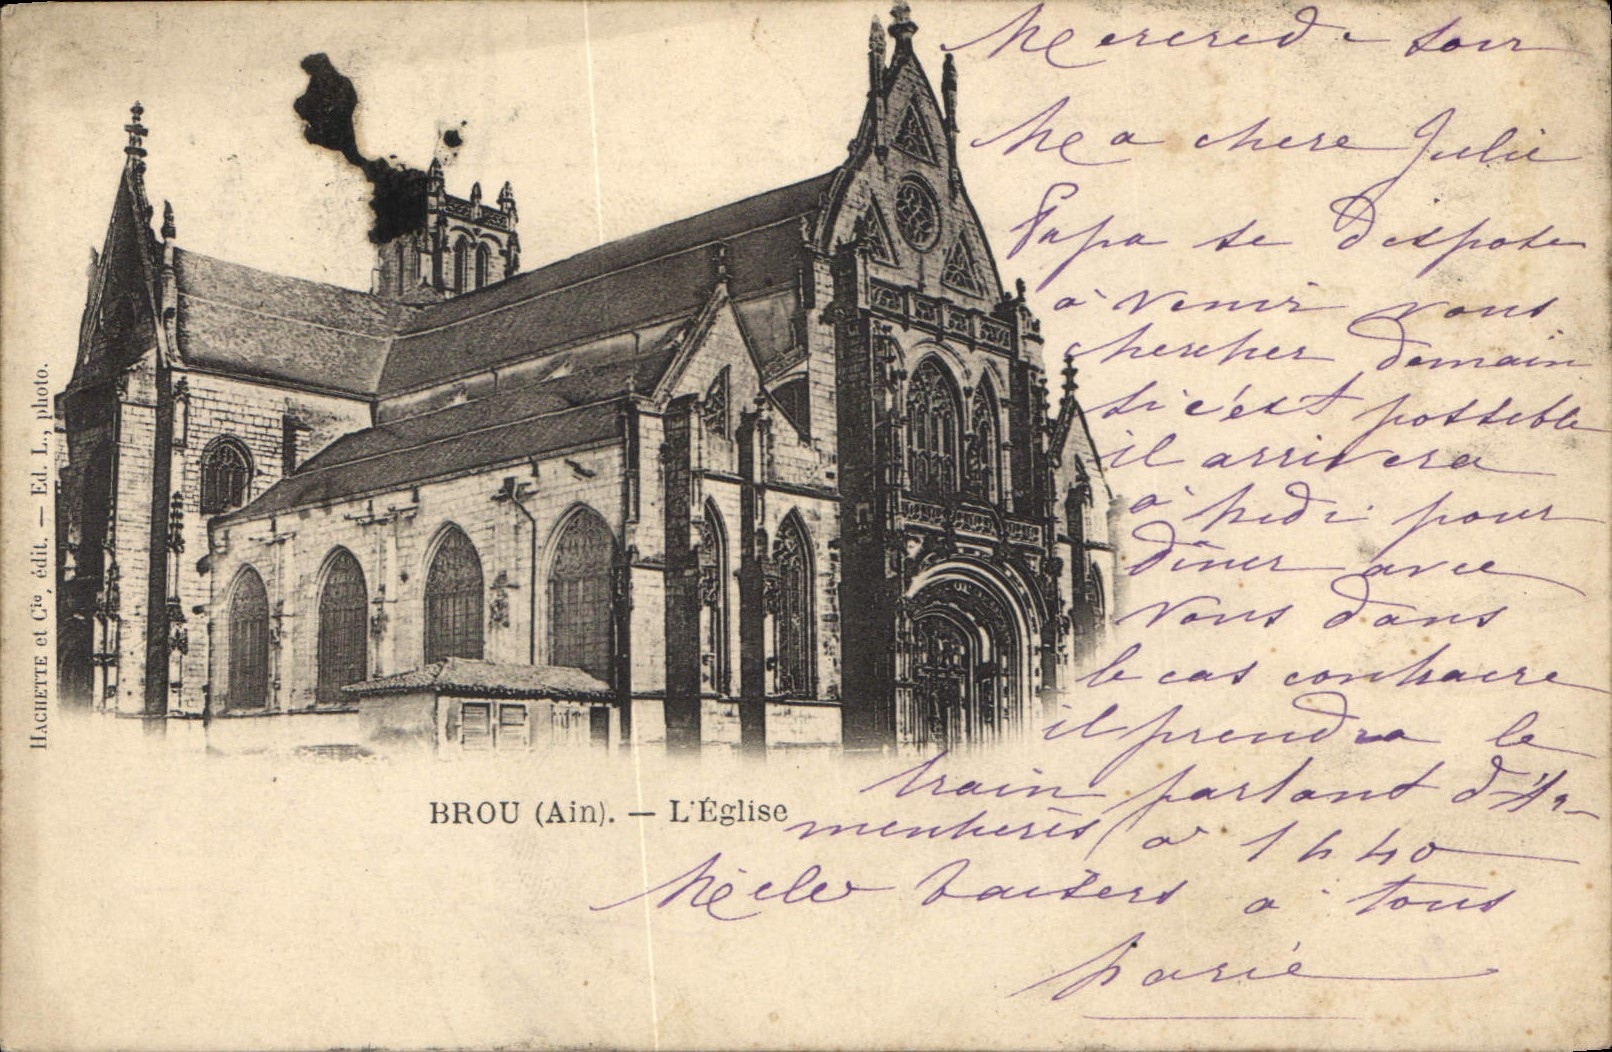 Mercredi soir
Ma chere Julie
Papa se dispose
à venir vous
chercher demain
si c'est possible
il arrivera
à midi pour
diner avec
vous dans
le cas contraire
il prendra le
train partant d'Ar-
mentieres à 1 h 40
Mille baisers à tous
Marie
BROU (Ain). — L'Église
HACHETTE et Cie, édit. — Ed. L., photo.